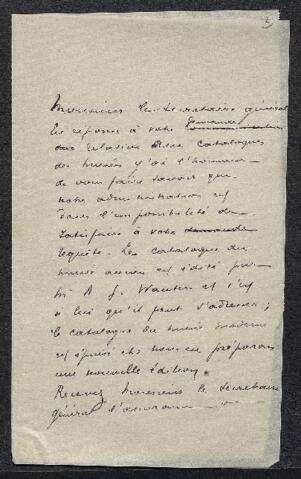 2
Monsieur le Secrétaire général
En réponse à votre demande
relative aux catalogues
des musées j'ai l'honneur
de vous faire savoir que
notre administration est
dans l'impossibilité de
satisfaire à votre demande
requête. Le catalogue du
musée ancien est édité par
Mr A. J. Wauters et c'est
à lui qu'il faut s'adresser ;
le catalogue du musée moderne
est épuisé et nous en préparons
une nouvelle édition.
Recevez Monsieur le Secrétaire
général l'assurance